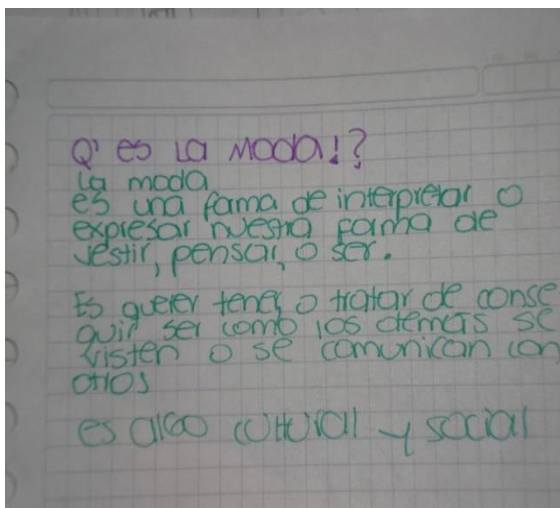 Q' es la Moda!?
la moda
es una fama de interpretar o
expresar nuestra foma de
vestir, pensar, o ser.
Es querer tener, o tratar de conse
guir ser como los demás se
visten o se comunican con
otros
es algo cultural y social